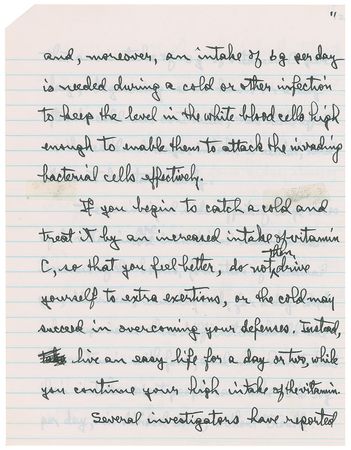 11
and, moreover, an intake of 6g per day
is needed during a cold or other infection
to keep the level in the white blood cells high
enough to enable them to attack the invading
bacterial cells effectively.
If you begin to catch a cold and
treat it by an increased intake of vitamin
C, so that you feel better, do not then drive
yourself to extra exertions, or the cold may
succeed in overcoming your defenses. Instead,
live an easy life for a day or two, while
you continue your high intake of the vitamin.
Several investigators have reported